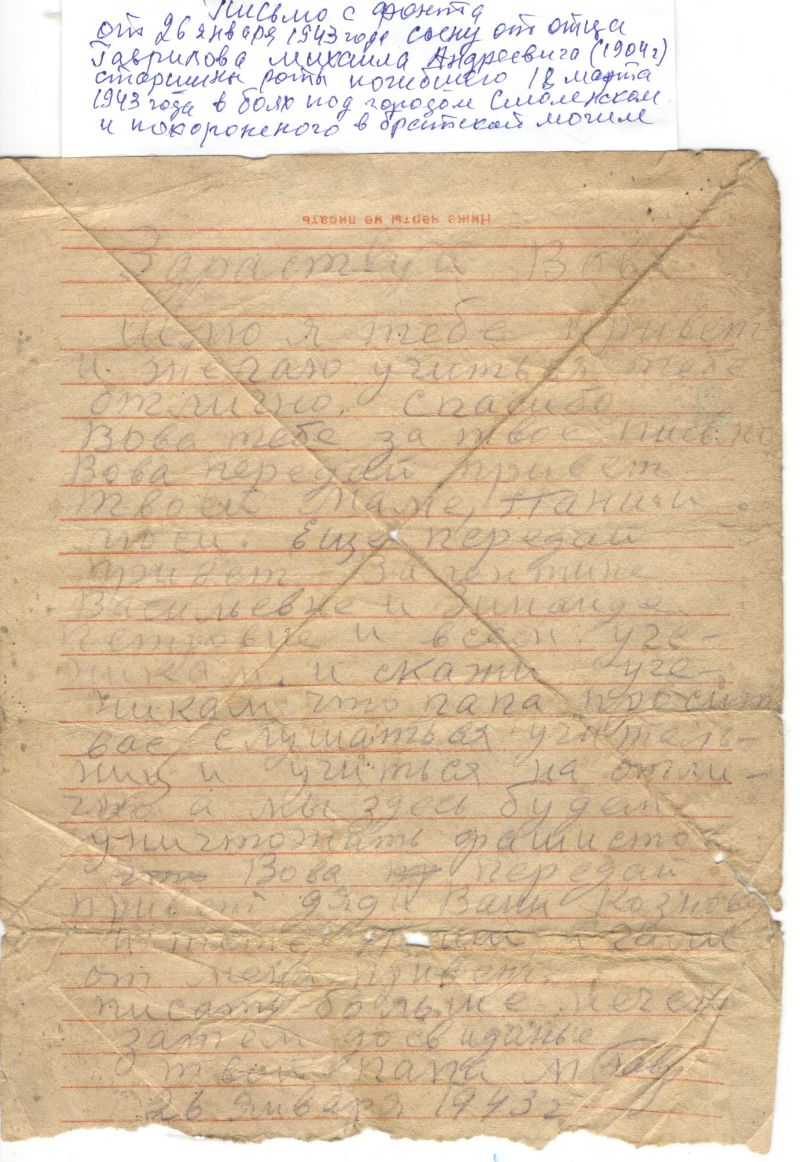 Письмо с фронта
от 26 января 1943 года сыну от отца
Гаврилова Михаила Андреевича (1904г)
старшины роты погибшего 18 марта
1943 года в боях под городом Смоленском
и похороненого в братской могиле
Ниже черты не писать
Здраствуй Вова
Шлю я тебе привет
и желаю учиться тебе
отлично. Спасибо
Вова тебе за твое письмо
Вова передай привет
твоей маме,
люси. Еще передай
привет Валентине
Васильевне и Зинаиде
Петровне и всем уче-
никам. и скажи уче-
никам что папа просит
вас слушаться учитель-
ниц и учиться на отли-
чно а мы здесь будем
уничтожить фашистов
Вова передай
привет дяди Вани
и тете и
от меня привет.
писать больше нечего
затем досвиданье
твой папа М Гавр
26 января 1943 г